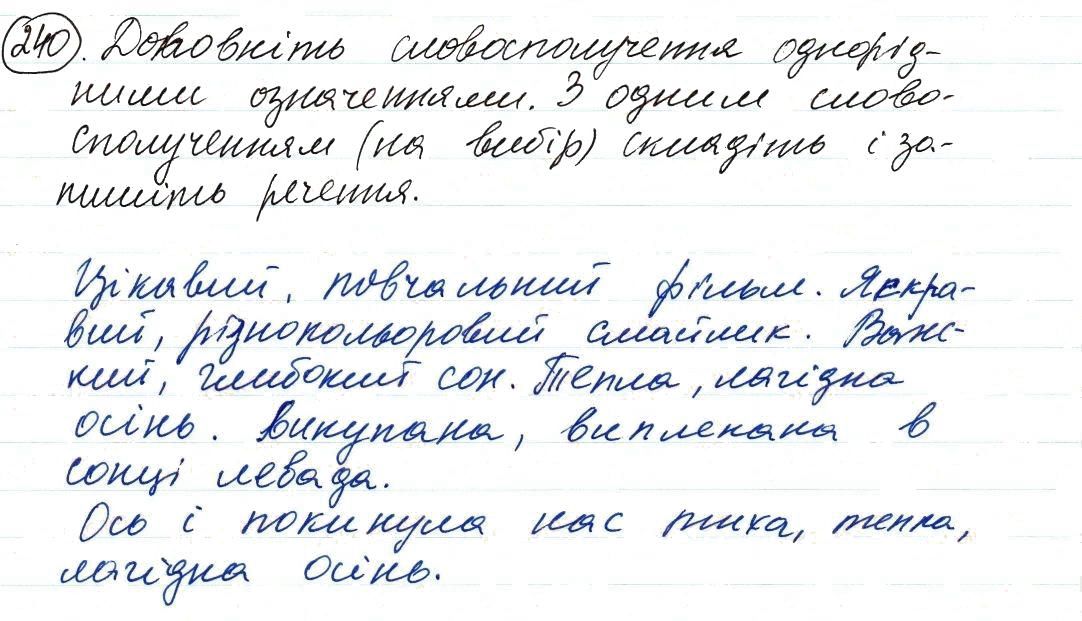 240. Доповніть словосполучення однорід-
ними означеннями. З одним слово-
сполученням (на вибір) складіть і за-
пишіть речення.
Цікавий, повчальний фільм. Яскра-
вий, різнокольоровий смайлик. Важ-
кий, глибокий сон. Тепла, лагідна
осінь. Викупана, виплекана в
сонці левада.
Ось і покинула нас тиха, тепла,
лагідна осінь.